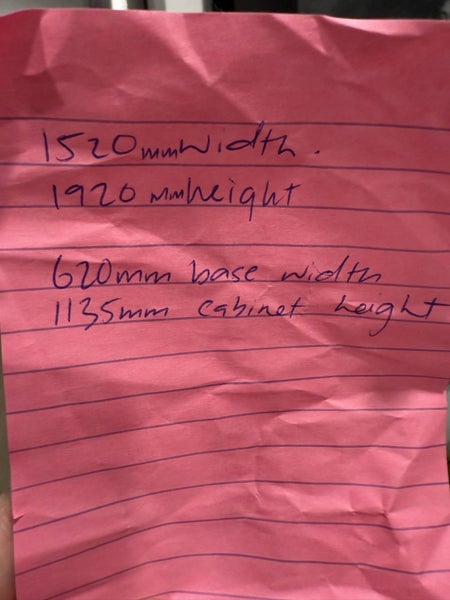 1520mm width.
1920mm height
620mm base width
1135mm cabinet height